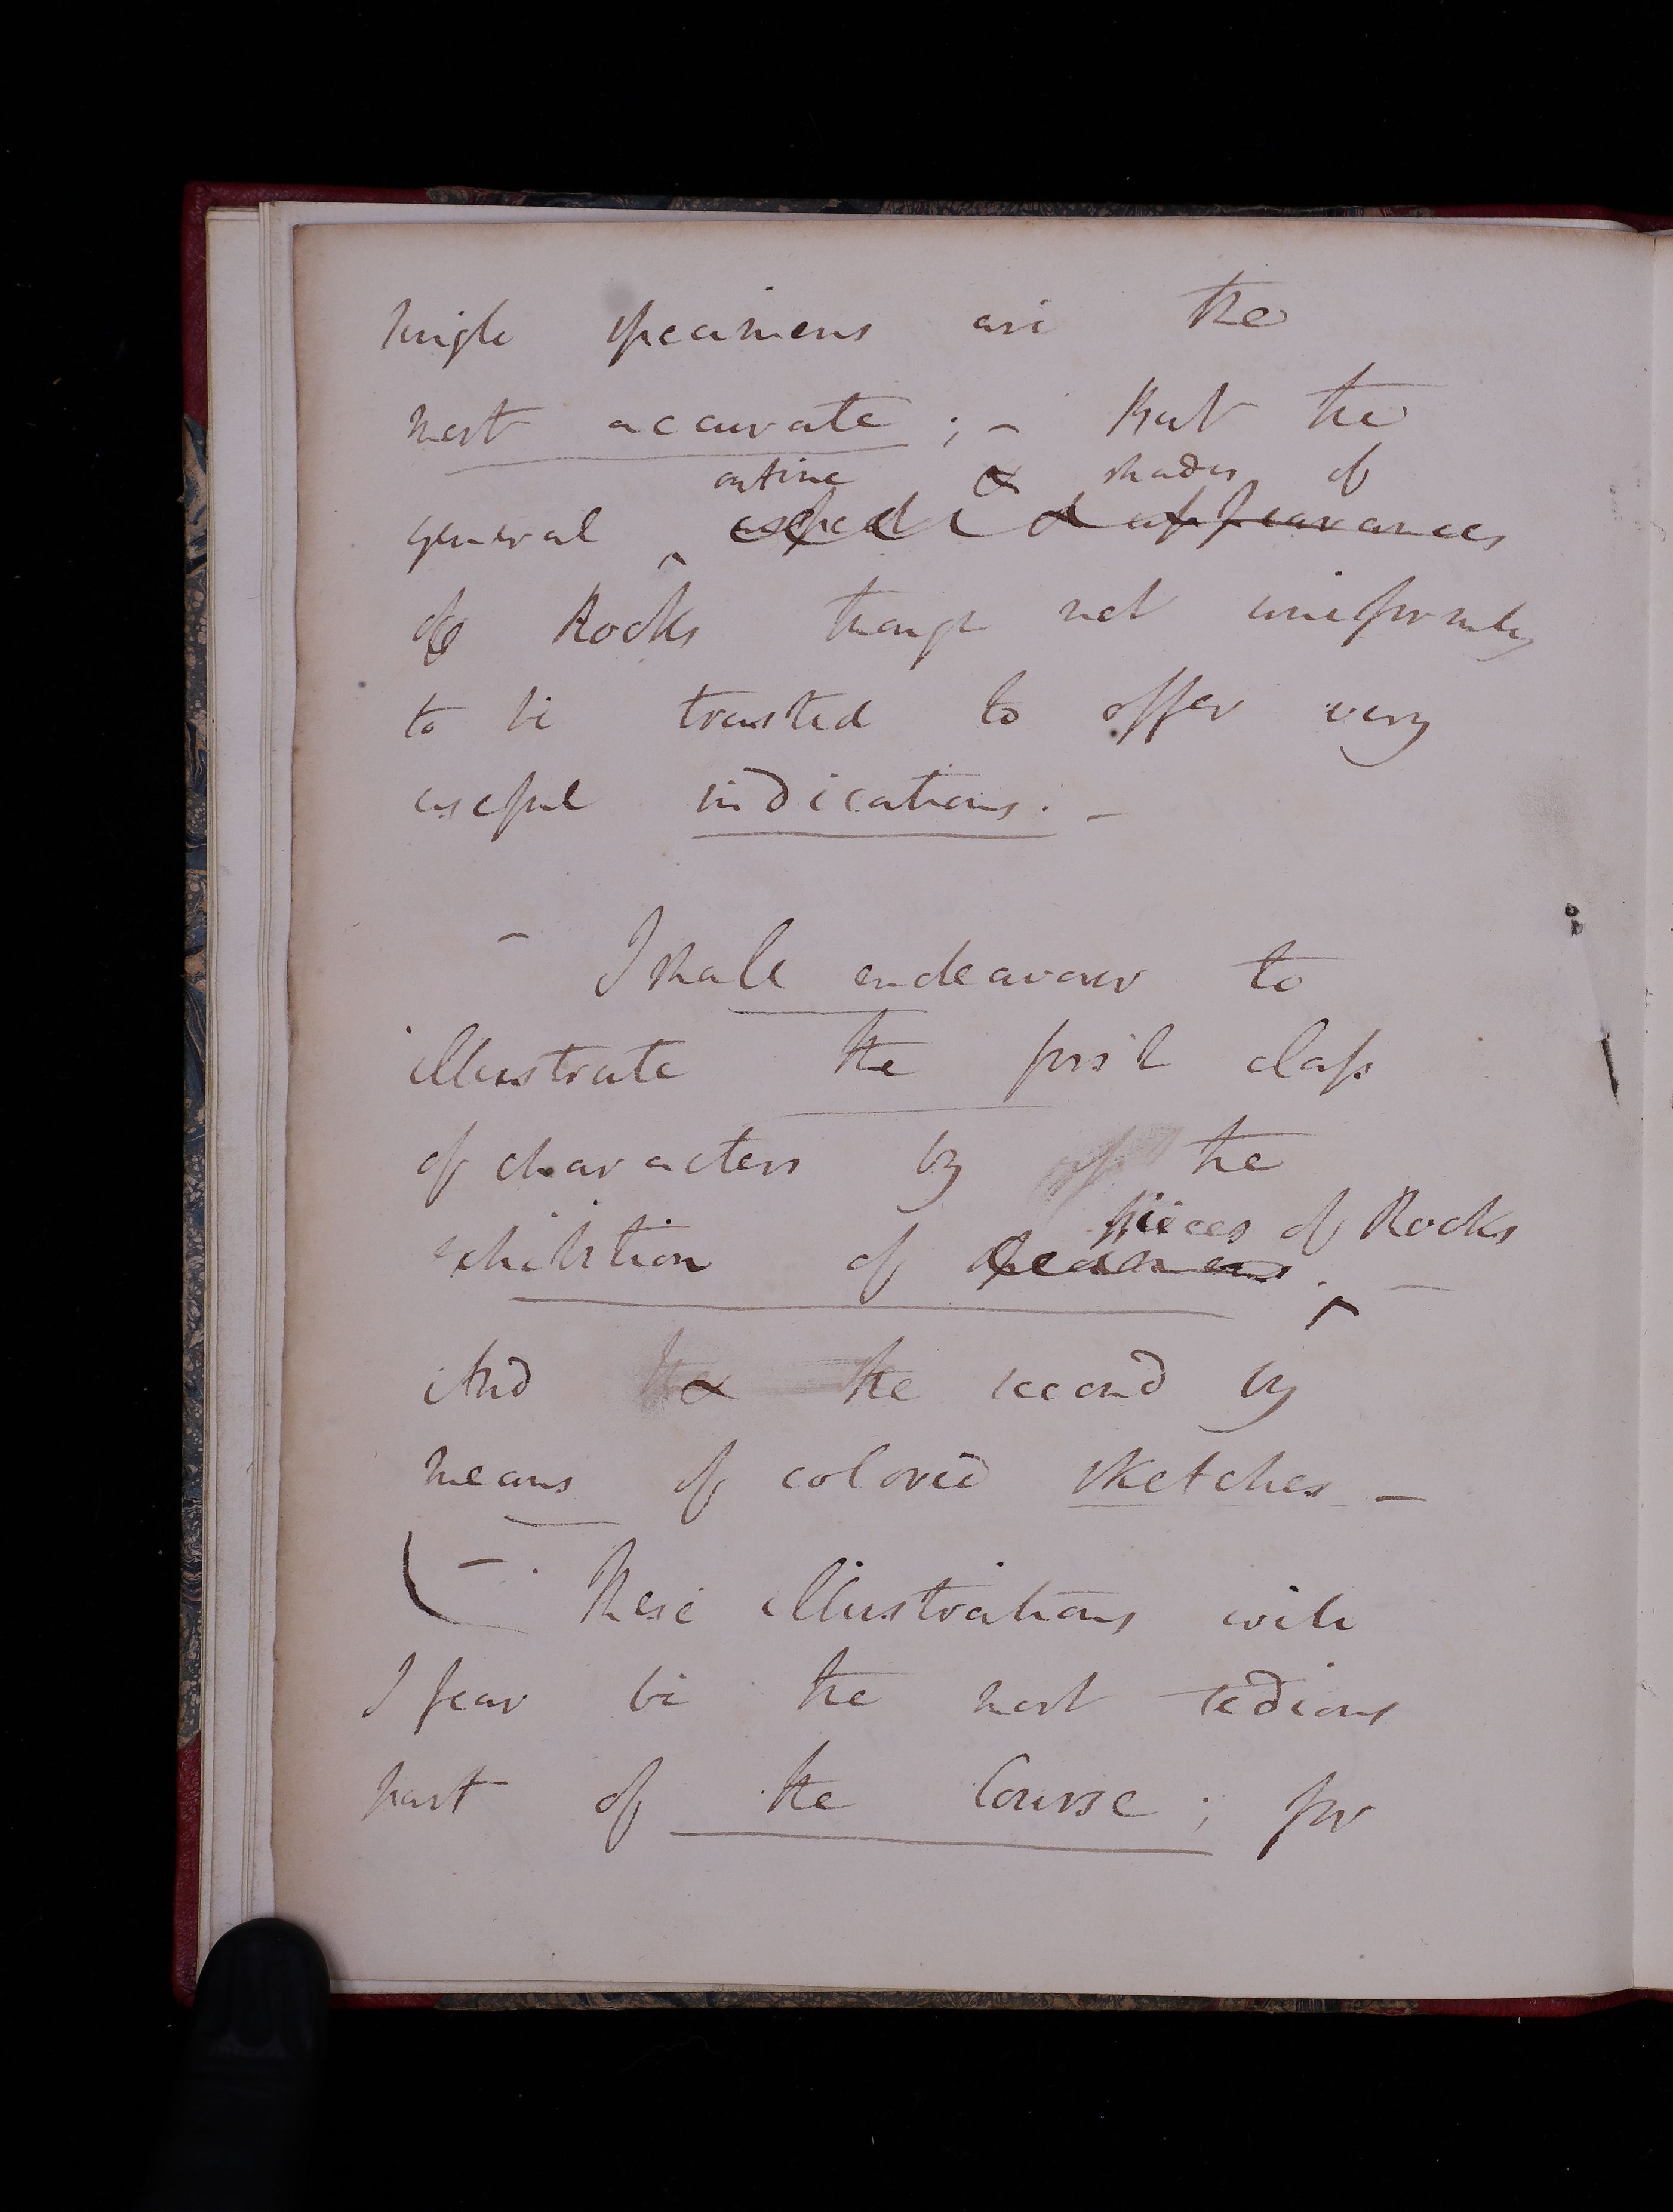 single specimens are the
most accurate; - But the
outline & shades of
general aspect & appearances
of Rocks though not uniformly
to be trusted to offer very
useful indications. -
- I shall endeavour to
illustrate the first class
of characters by the
pieces of Rocks
exhibition of specimens. -
And the second by
means of colored sketches -
- These illustrations will
I fear be the most tedious
part of the Course; for